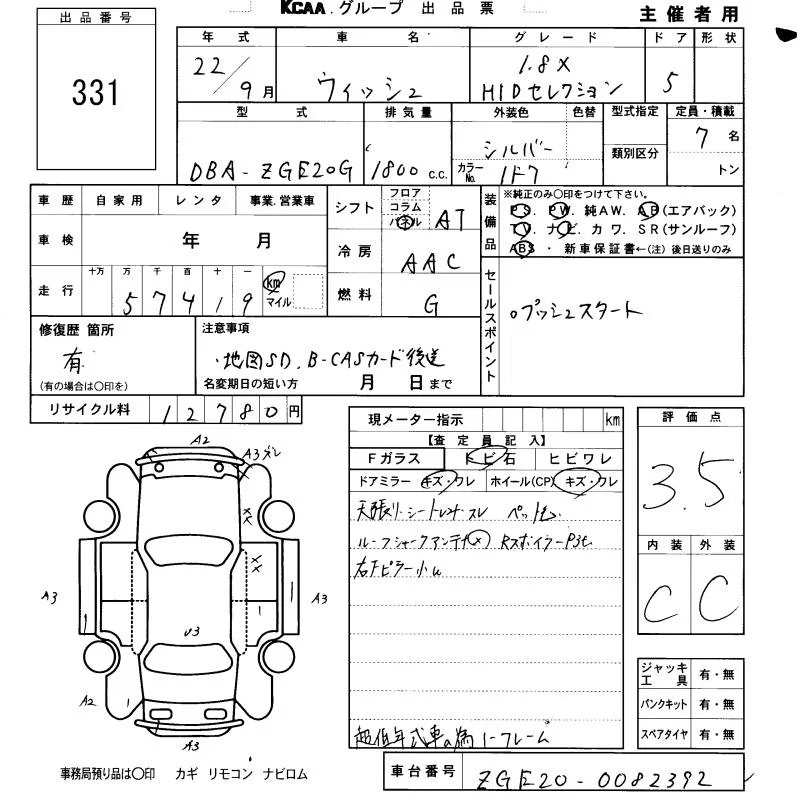 KCAA.グループ 出品票
主催者用
出品番号
331
年式 車名 グレード ドア 形状
22/9月 ウィッシュ 1.8X HIDセレクション 5
型式 排気量 外装色 色替 型式指定 定員・積載
DBA-ZGE20G 1800 c.c. シルバー カラーNo. 1F7 類別区分 7名 トン
車歴 自家用 レンタ 事業.営業車
車検 年 月
走行 十万 万 千 百 十 一
57419 km マイル
シフト フロア コラム パネル AT
冷房 AAC
燃料 G
装備品 ※純正のみ○印をつけて下さい。
PS. PW. 純AW. AB(エアバック)
TV. ナビ. カワ. SR(サンルーフ)
ABS ・新車保証書←(注)後日送りのみ
セールスポイント
○プッシュスタート
修復歴 箇所
有
(有の場合は○印を)
注意事項
・地図SD、B-CASカード後送
名変期日の短い方 月 日まで
リサイクル料 12780円
現メーター指示 km
【査定員記入】
Fガラス トビ石 ヒビワレ
ドアミラー キズ・ワレ ホイール(CP) キズ・ワレ
天張り・シート
ルーフシャークアンテナ(×) Rスポイラー
右Fピラー小
超低年式車の為 1-フレーム
評価点
3.5
内装 外装
C C
ジャッキ工具 有・無
パンクキット 有・無
スペアタイヤ 有・無
車台番号 ZGE20-0082392
A2
A3
××
××
A3
1
1
A3
U3
A2
1
A3
事務局預り品は○印 カギ リモコン ナビロム